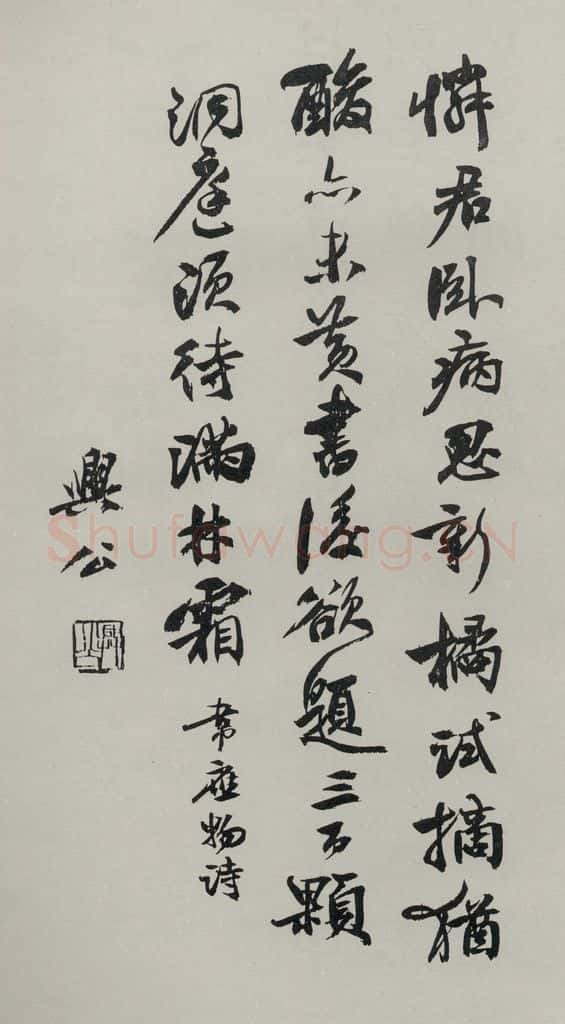 憐君卧病思新橘試摘猶
酸亦未黄書後欲題三百顆
洞庭須待滿林霜
韋應物詩
興公
Shufawang.CN